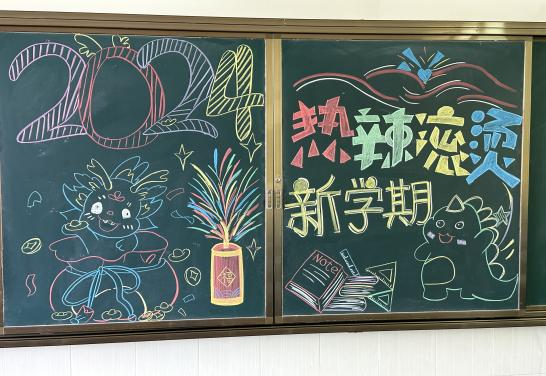 2024
热辣滚烫
新学期
Note